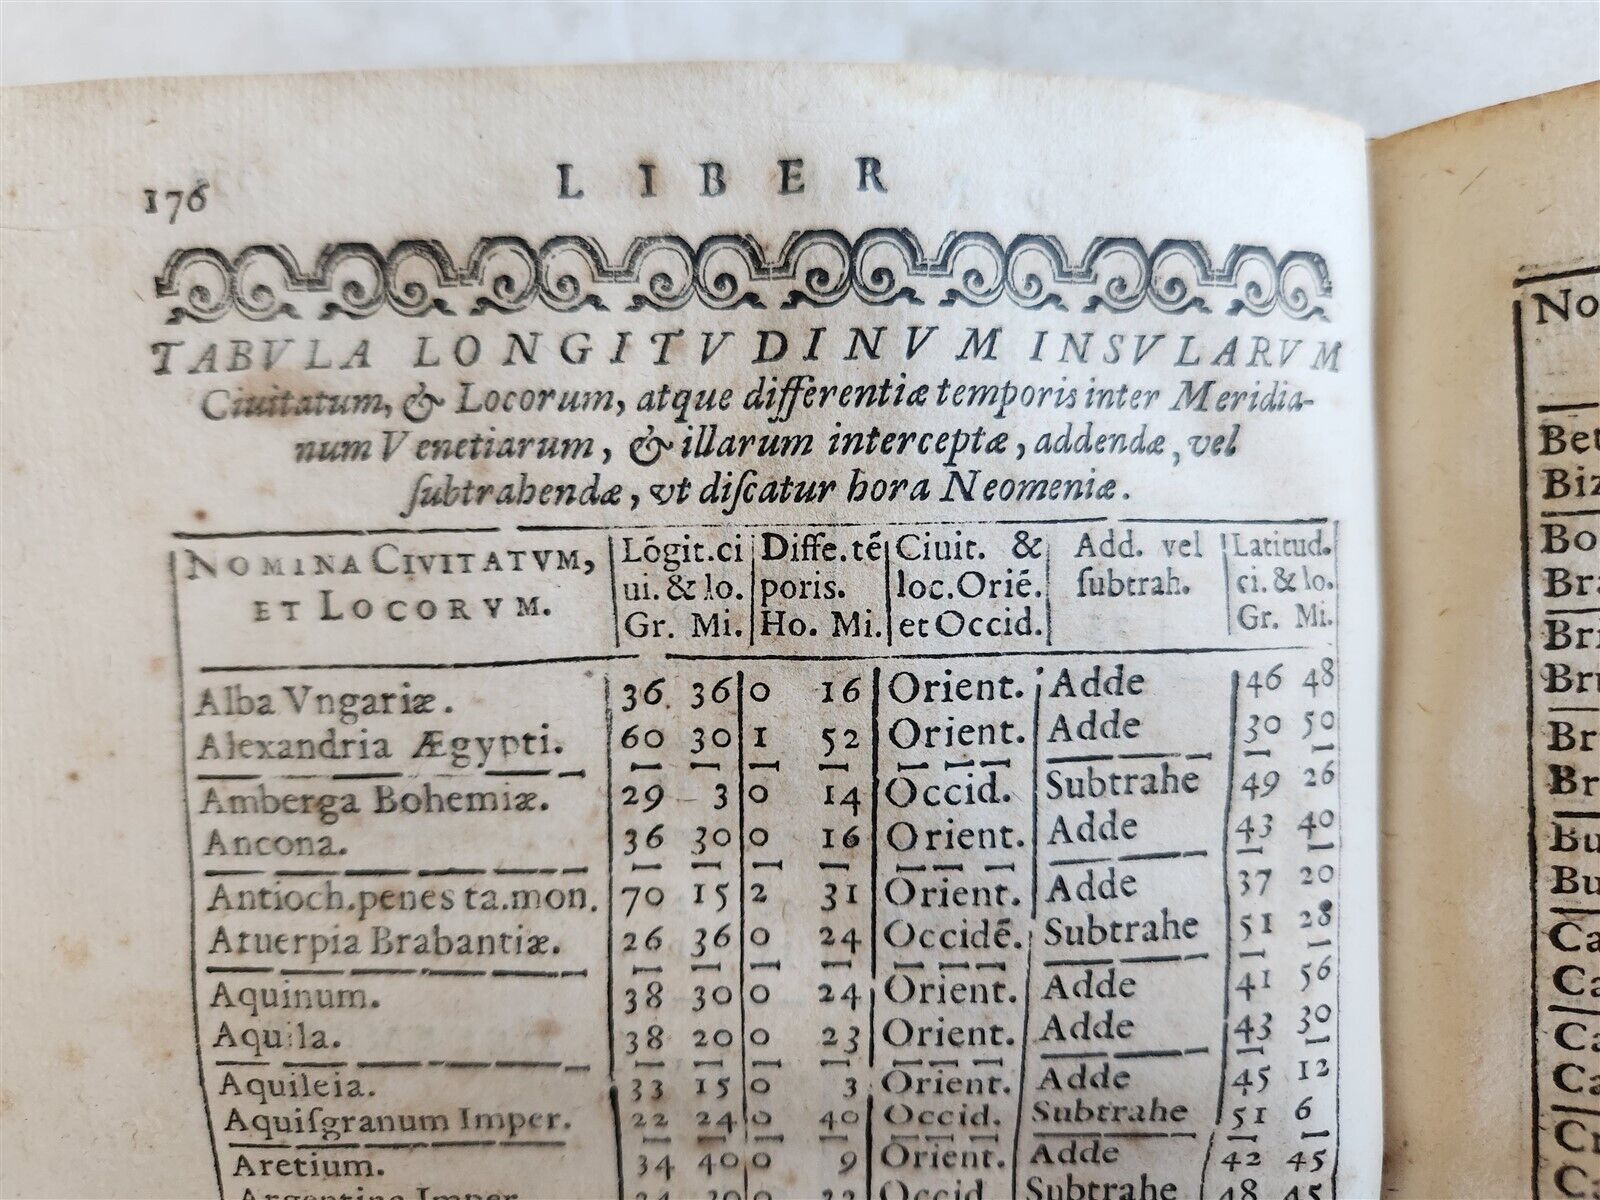 176
LIBER
TABVLA LONGITVDINVM INSVLARVM
Ciuitatum, & Locorum, atque differentiæ temporis inter Meridia-
num Venetiarum, & illarum interceptæ, addendæ, vel
ſubtrahendæ, vt diſcatur hora Neomeniæ.
NOMINA CIVITATVM, ET LOCORVM. | Lōgit.ci ui. & lo. Gr. Mi. | Diffe.tē poris. Ho. Mi. | Ciuit. & loc.Oriē. et Occid. | Add. vel ſubtrah. | Latitud. ci. & lo. Gr. Mi.
Alba Vngariæ. 36 36 0 16 Orient. Adde 46 48
Alexandria Ægypti. 60 30 1 52 Orient. Adde 30 50
Amberga Bohemiæ. 29 3 0 14 Occid. Subtrahe 49 26
Ancona. 36 30 0 16 Orient. Adde 43 40
Antioch.penes ta.mon. 70 15 2 31 Orient. Adde 37 20
Atuerpia Brabantiæ. 26 36 0 24 Occidē. Subtrahe 51 28
Aquinum. 38 30 0 24 Orient. Adde 41 56
Aquila. 38 20 0 23 Orient. Adde 43 30
Aquileia. 33 15 0 3 Orient. Adde 45 12
Aquiſgranum Imper. 22 24 0 40 Occid. Subtrahe 51 6
Aretium. 34 40 0 9 Orient. Adde 42 45
Argentina Imper. 24 Occid. Subtrahe 48 45
No
Bet
Biz
Bo
Bra
Bri
Bru
Br
Br
Bu
Bu
Ca
Ca
Ca
Ca
Cr
Ca